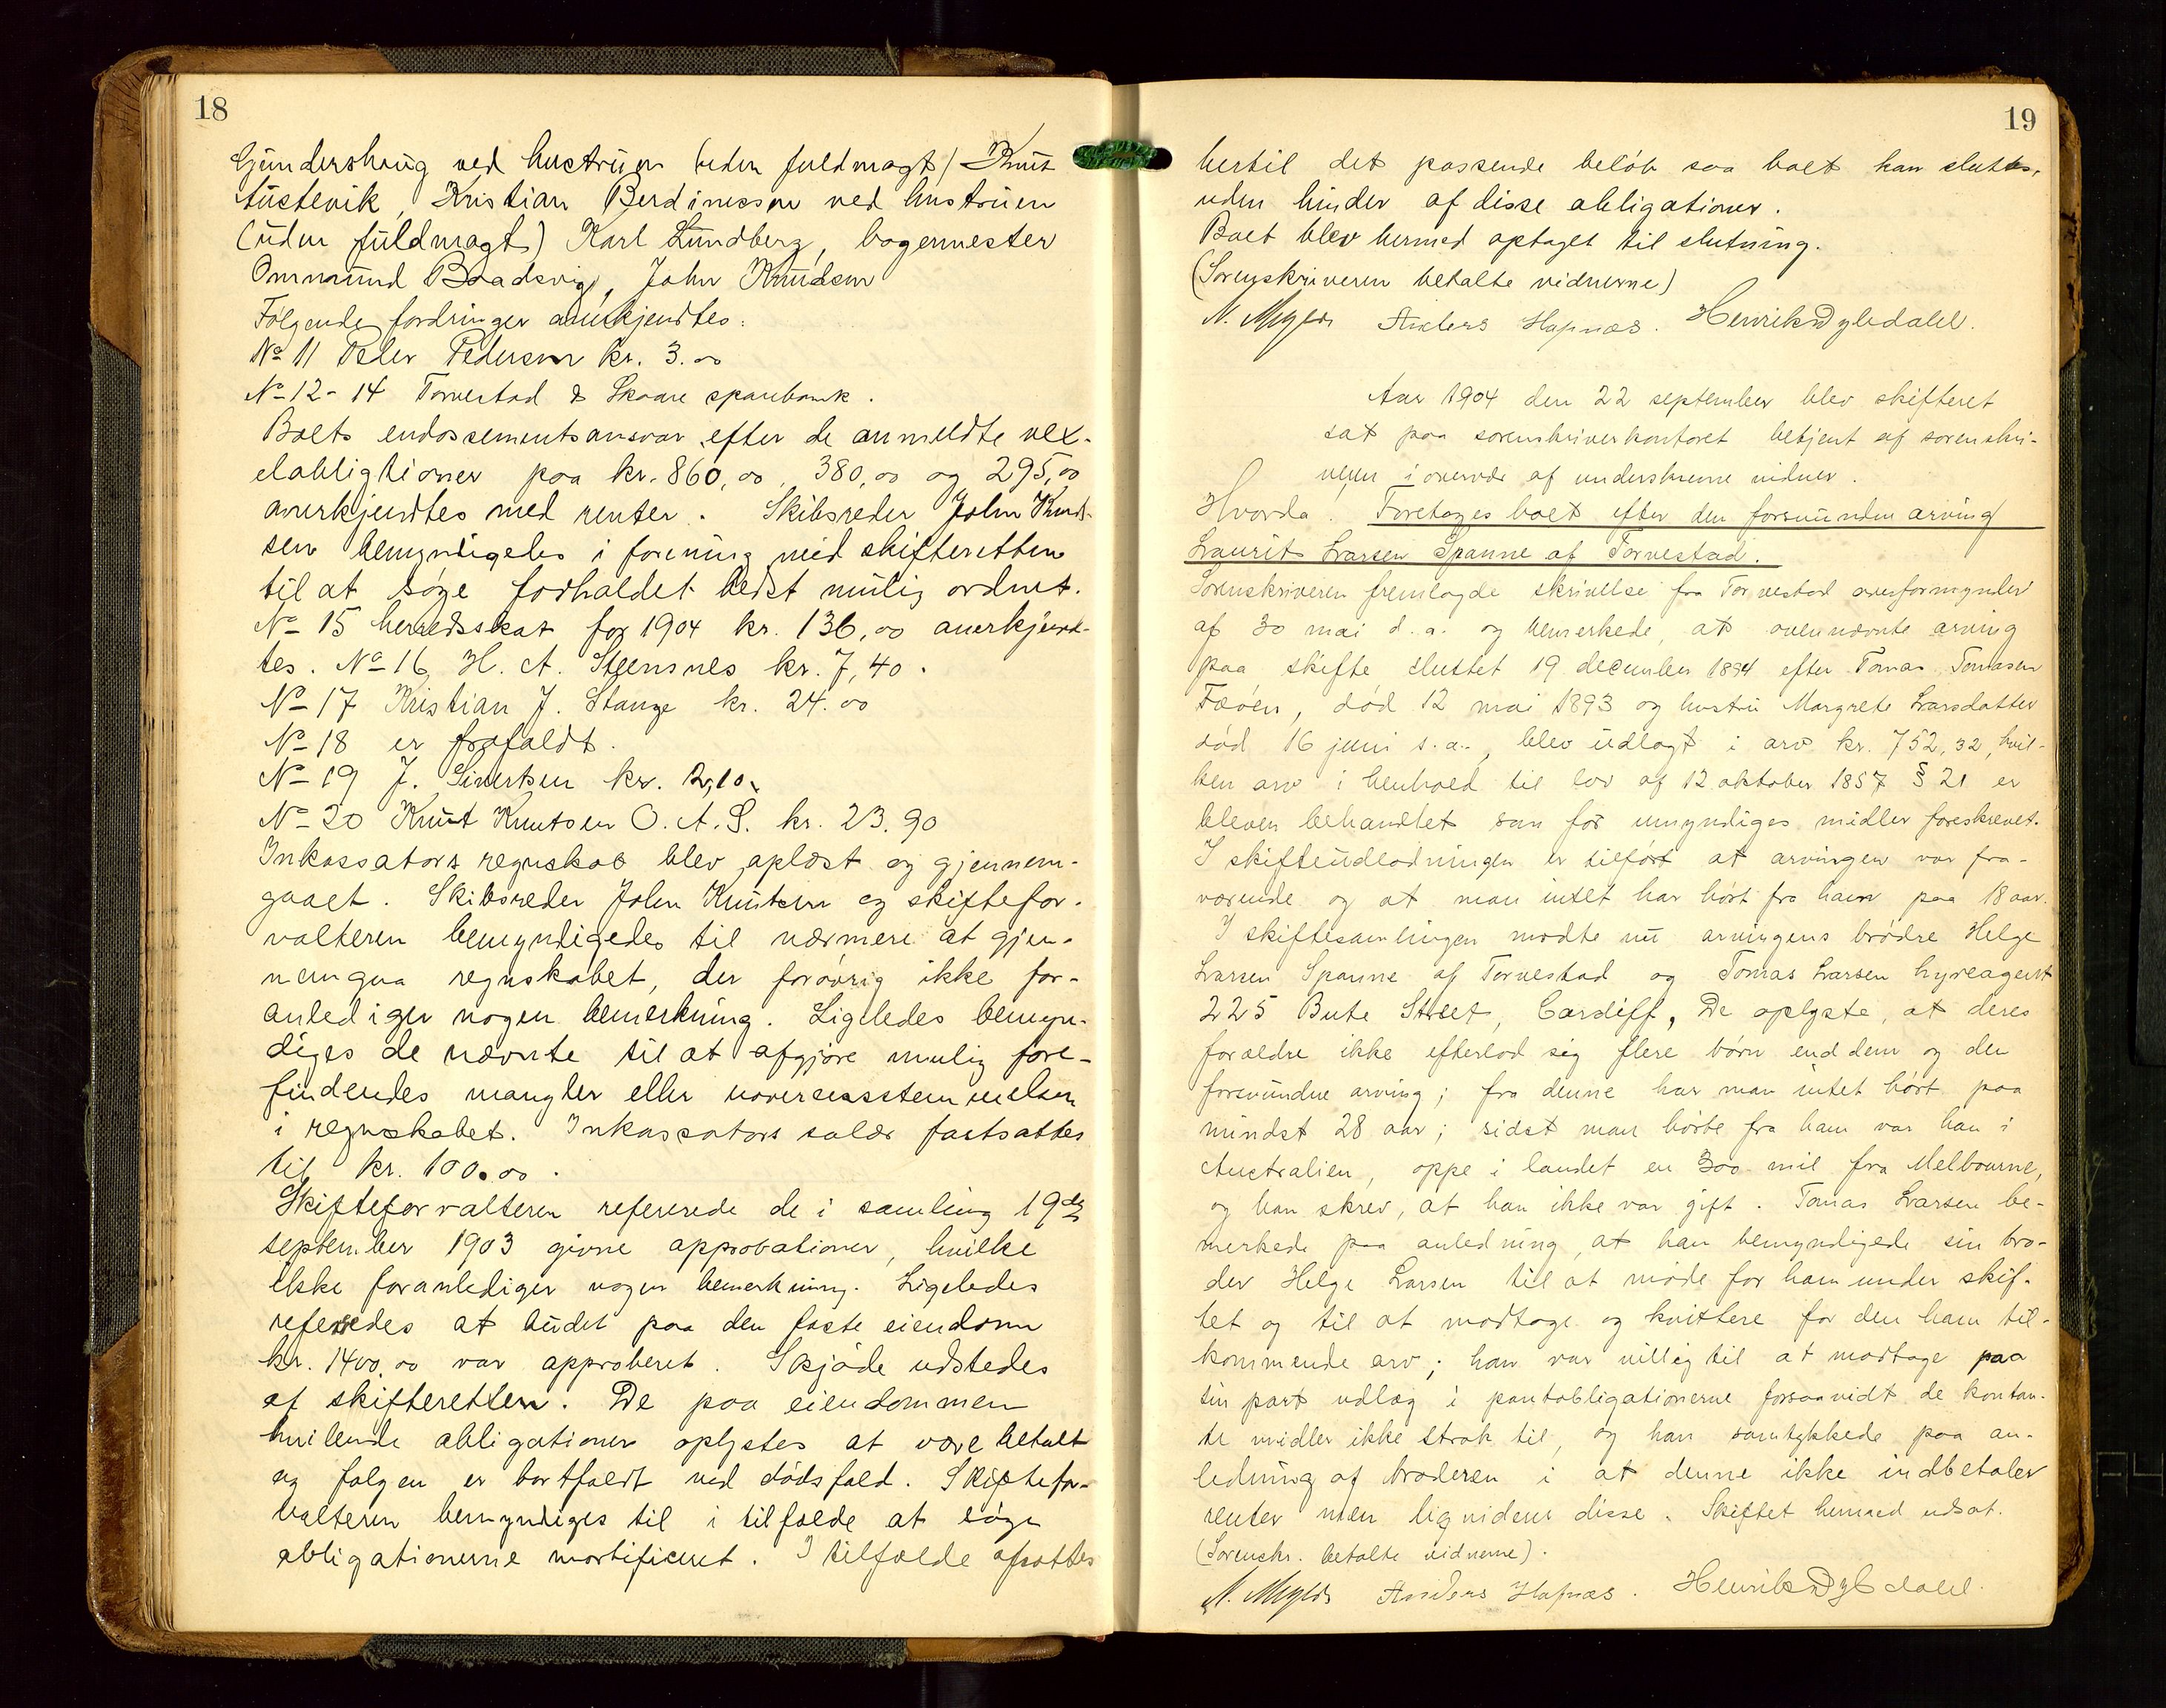 18
Gundershaug ved hustruen (uden fuldmagt) Knut
Tustevik, Kristian Berdinessen ved hustruen
(uden fuldmagt) Karl Lundberg, bogermester
Ommund Baadsvig, John Knudsen
Følgende fordringer anerkjendtes:
No 11 Peder Pedersen kr. 3.00
No 12-14 Torvestad & Skaare sparebank.
Boets endossementsansvar efter de anmeldte vex-
elobligtioner paa kr. 860,00, 380,00 og 295,00
anerkjendtes med renter. Skibsreder John Knud-
sen bemyndigedes i forening med skifteretten
til at søge forholdet bedst mulig ordnet.
No 15 herredsskat for 1904 kr. 136,00 anerkjend-
tes. No 16 H. A. Steensnes kr. 7,40.
No 17 Kristian J. Stange kr. 24.00
No 18 er frafaldt.
No 19 J. Sivertsen kr. 2,10.
No 20 Knut Knutsen O. A. S. kr. 23.90
Inkassators regnskab blev oplæst og gjennem-
gaaet. Skibsreder John Knutsen og skiftefor-
valteren bemyndigedes til nærmere at gjen-
nemgaa regnskabet, der forøvrig ikke for-
anlediger nogen bemerkning. Ligeledes bemyn-
diges de nævnte til at afgjøre mulig fore-
findendes mangler eller uoverensstemmelser
i regnskabet. Inkassators salær fastsattes
til kr. 100.00.
Skifteforvalteren refererede de i samling 19de
september 1903 givne approbationer, hvilke
ikke foranlediger nogen bemerkning. Ligeledes
referedes at budet paa den faste eiendom
kr. 1400.00 var approberet. Skjøde udstedes
af skifteretten. De paa eiendommen
hvilende obligationer oplystes at være betalt
og følgen er bortfaldt ved dødsfald. Skiftefor-
valteren bemyndiges til i tilfælde at søge
obligationerne mortificeret. I tilfælde afsattes
19
hertil det passende beløb saa boet kan sluttes,
uden hinder af disse obligationer.
Boet blev hermed optaget til slutning.
(Sorenskriveren betalte vidnerne)
Anders Hapnes. Henrik Dybdahl.
Aar 1904 den 22 september blev skifteret
sat paa sorenskriverkontoret betjent af sorenskri-
veren i overvær af underskrevne vidner.
Hvorda. Foretoges boet efter den forsvundne arving
Laurits Larsen Spanne af Torvestad.
Sorenskriveren fremlagde skrivelse fra Torvestad overformynder
af 30 mai d. a. og bemerkede, at ovennævnte arving
paa skifte sluttet 19 december 1894 efter Tomas Tomasen
Fæøen, død 12 mai 1893 og hustru Margrete Larsdatter
død 16 juni s. a., blev udlagt i arv kr. 752,32, hvil-
ken arv i henhold til lov af 12 oktober 1857 § 21 er
bleven behandlet som for umyndiges midler foreskrevet.
I skifteudlodningen er tilført at arvingen var fra-
værende og at man intet har hørt fra ham paa 18 aar.
I skiftesamlingen mødte nu arvingens brødre Helge
Larsen Spanne af Torvestad og Tomas Larsen hyreagent
225 Bute Street, Cardiff, De oplyste, at deres
forældre ikke efterlod sig flere børn end dem og den
forsvundne arving; fra denne har man intet hørt paa
mindst 28 aar; sidst man hørte fra ham var han i
Australien, oppe i landet en 300 mil fra Melbourne,
og han skrev, at han ikke var gift. Tomas Larsen be-
merkede paa anledning, at han bemyndigede sin bro-
der Helge Larsen til at møde for ham under skif-
tet og til at modtage og kvittere for den ham til-
kommende arv; han var villig til at modtage paa
sin part udlæg i pantobligationerne forsaavidt de kontan-
te midler ikke strak til, og han samtykkede paa an-
ledning af broderen i at denne ikke indbetaler
renter men ligviderer disse. Skiftet hermed udsat.
(Sorenskr. betalte vidnerne).
Anders Hapnes. Henrik Dybdahl.